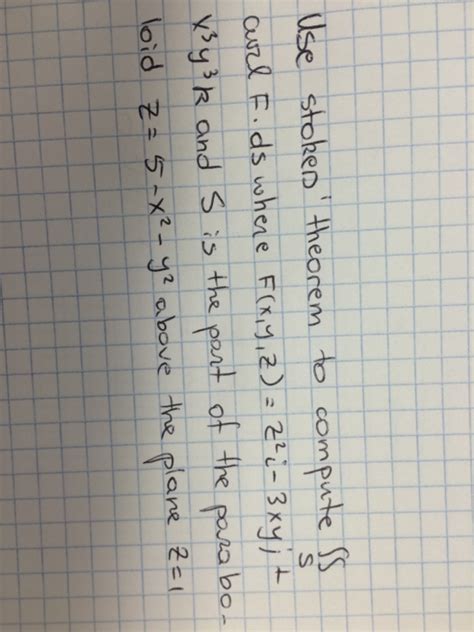 Use stokes' theorem to compute ∬
S
curl F·ds where F(x,y,z) = z²i - 3xyj +
x³y³k and S is the part of the parabo-
loid z = 5 - x² - y² above the plane z=1